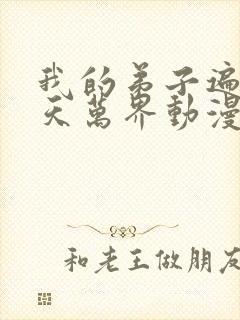 我的弟子遍
天萬界動漫
和老王做朋友